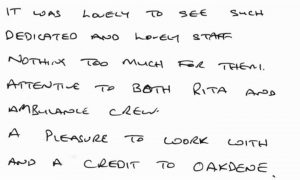 IT WAS LOVELY TO SEE SUCH
DEDICATED AND LOVELY STAFF
NOTHING TOO MUCH FOR THEM.
ATTENTIVE TO BOTH RITA AND
AMBULANCE CREW.
A PLEASURE TO WORK WITH
AND A CREDIT TO OAKDENE.